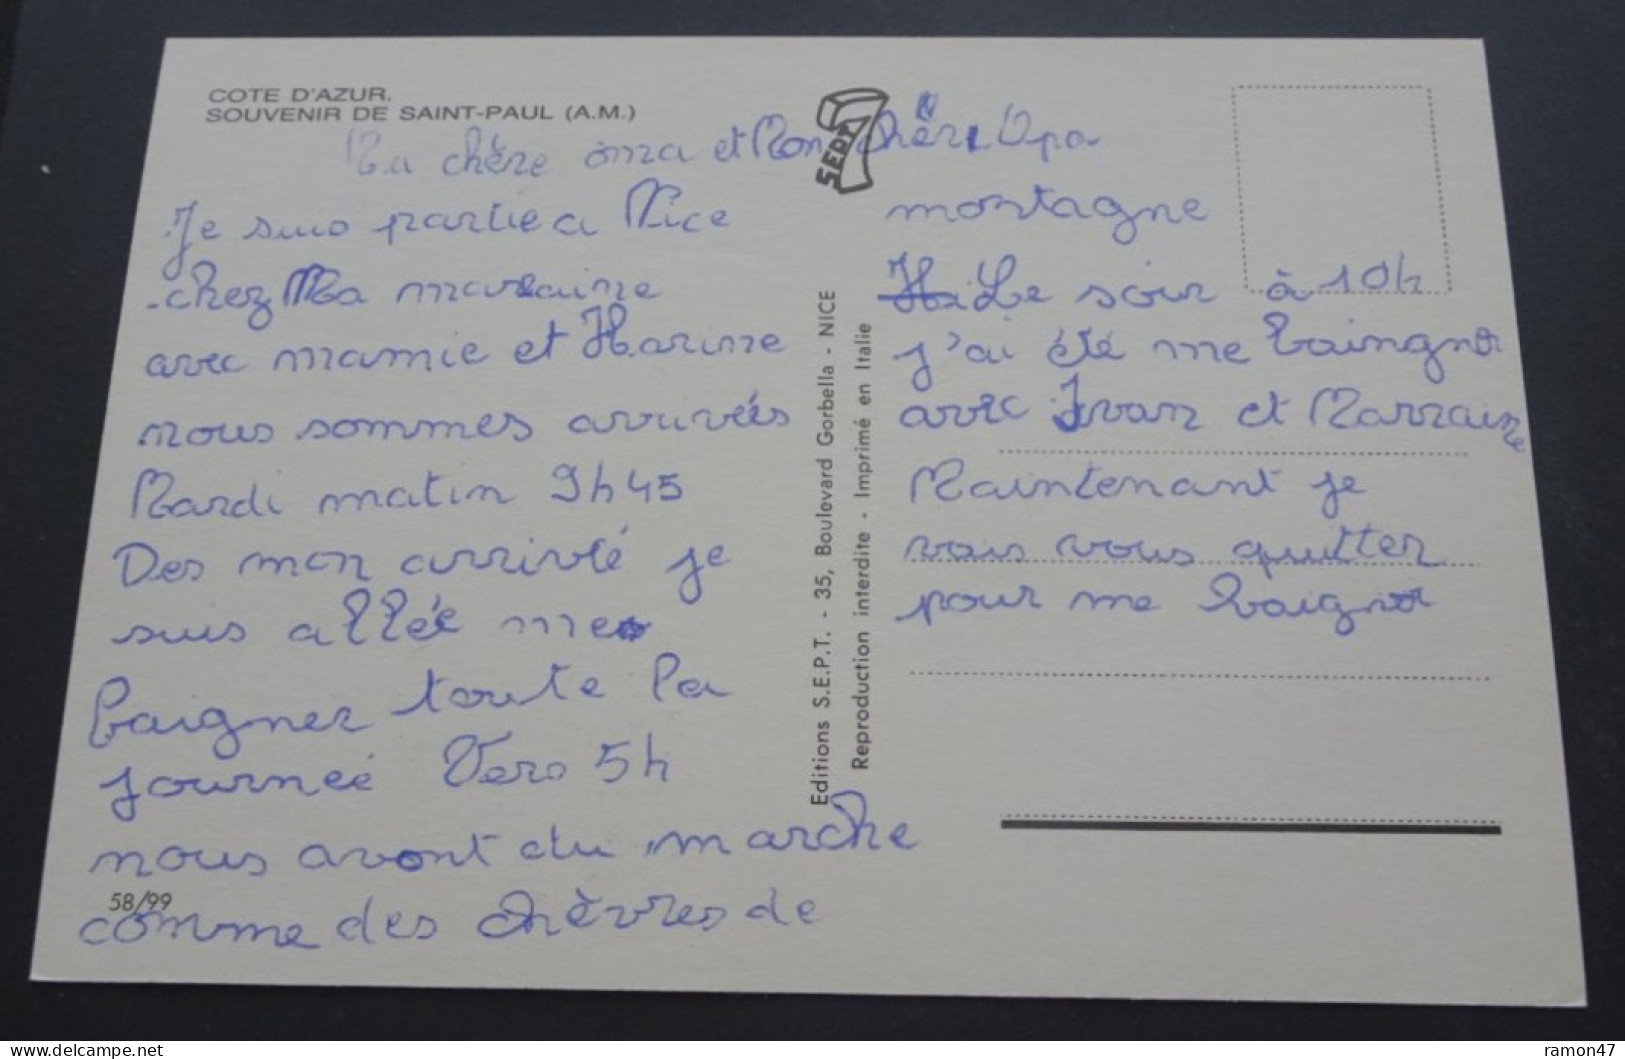 COTE D'AZUR.
SOUVENIR DE SAINT-PAUL (A.M.)
SEPT 7
Ma chère oma et Mon chèr Opa
Je suis partie a Nice
chez Ma marraine
avec mamie et Karine
nous sommes arrivés
Mardi matin 9h45
Des mon arrivté je
suis allée me
baigner toute la
journeé Vers 5h
nous avont du marche
comme des chèvres de
58/99
montagne
Le soir à 10h
j'ai été me baingner
avec Ivan et Marraine
Maintenant je
vais vous quitter
pour me baigner
Editions S.E.P.T. - 35, Boulevard Gorbella - NICE
Reproduction interdite - Imprimé en Italie
www.delcampe.net
ramon47